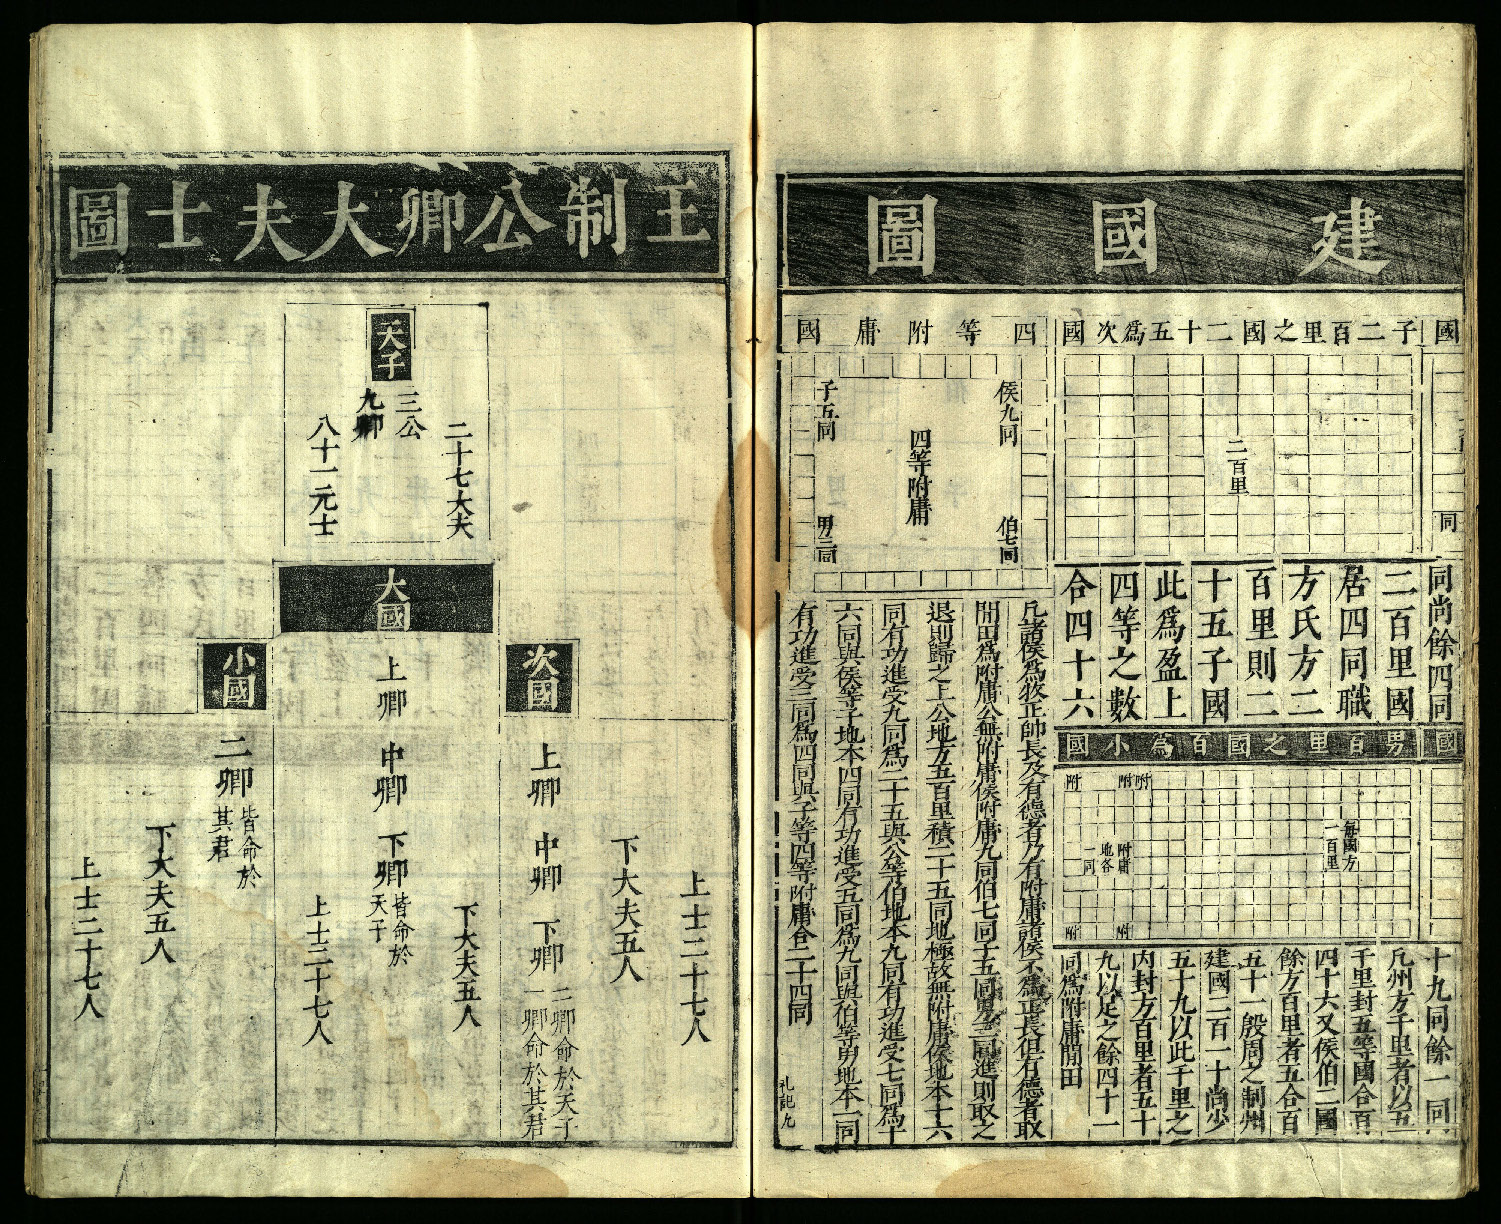 建國圖
國
子二百里之國二十五為次國
二百里
同
同尚餘四同
二百里國
居四同職
方氏方二
百里則二
十五子國
此為盈上
四等之數
合四十六
國
男百里之國百為小國
附
附
附
每國方
一百里
附庸
地各
一同
附
附
十九同餘一同
凡州方千里者以五
千里封五等國合百
四十六又侯伯二國
餘方百里者五合百
五十一殷周之制州
建國二百一十尚少
五十九以此千里之
內封方百里者五十
九以足之餘四十一
同為附庸閒田
四等附庸國
侯九同
伯七同
四等附庸
子五同
男三同
凡諸侯為牧正帥長及有德者乃有附庸諸侯不為正長但有德者取
閒田為附庸公無附庸侯附庸九同伯七同子五同男三同進則取之
退則歸之上公地方五百里積二十五同地極故無附庸侯地本十六
同有功進受九同為二十五與公等伯地本九同有功進受七同為十
六同與侯等子地本四同有功進受五同為九同與伯等男地本一同
有功進受三同為四同與子等四等附庸合二十四同
礼記九
王制公卿大夫士圖
天子
二十七大夫
三公
九卿
八十一元士
大國
上卿 中卿 下卿
皆命於
天子
下大夫五人
上士二十七人
次國
上卿 中卿 下卿
二卿命於天子
一卿命於其君
下大夫五人
上士二十七人
小國
二卿
皆命於
其君
下大夫五人
上士二十七人